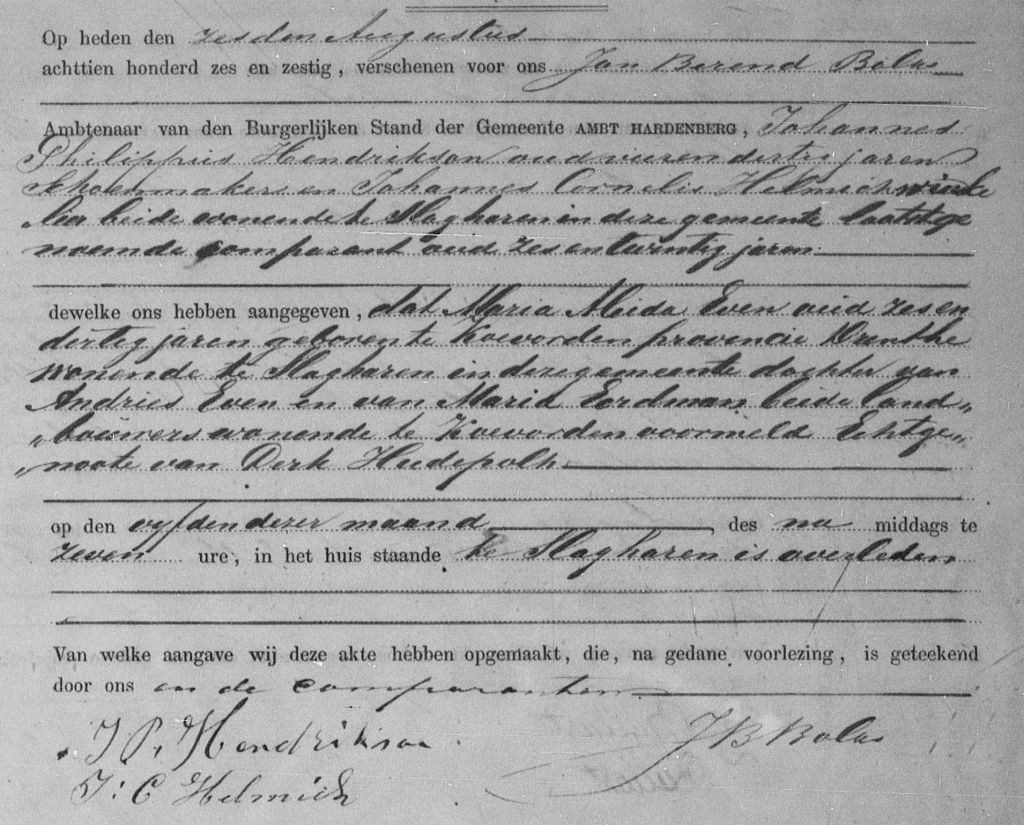 Op heden den zesden Augustus
achttien honderd zes en zestig, verschenen voor ons Jan Berend Bolks
Ambtenaar van den Burgerlijken Stand der Gemeente AMBT HARDENBERG, Johannes
Philippus Hendrikson oud vieren dertig jaren
schoenmaker en Johannes Cornelis Helmich winke
lier beide wonende te Slagharen in deze gemeente laatstge
noemde comparant oud zes en twintig jaren
dewelke ons hebben aangegeven, dat Maria Aleida Even oud zes en
dertig jaren geboren te Koevorden provincie Drenthe
wonende te Slagharen in deze gemeente dochter van
Andries Even en van Maria Eerdman beide land„
„bouwers wonende te Koevorden voormeld Echtge„
„noote van Derk Hudepolh
op den vyfden dezer maand, des na middags te
zeven ure, in het huis staande te Slagharen is overleden
Van welke aangave wij deze akte hebben opgemaakt, die, na gedane voorlezing, is geteekend
door ons en de comparanten
J P. Hendrikson JB Bolks
J: C Helmich